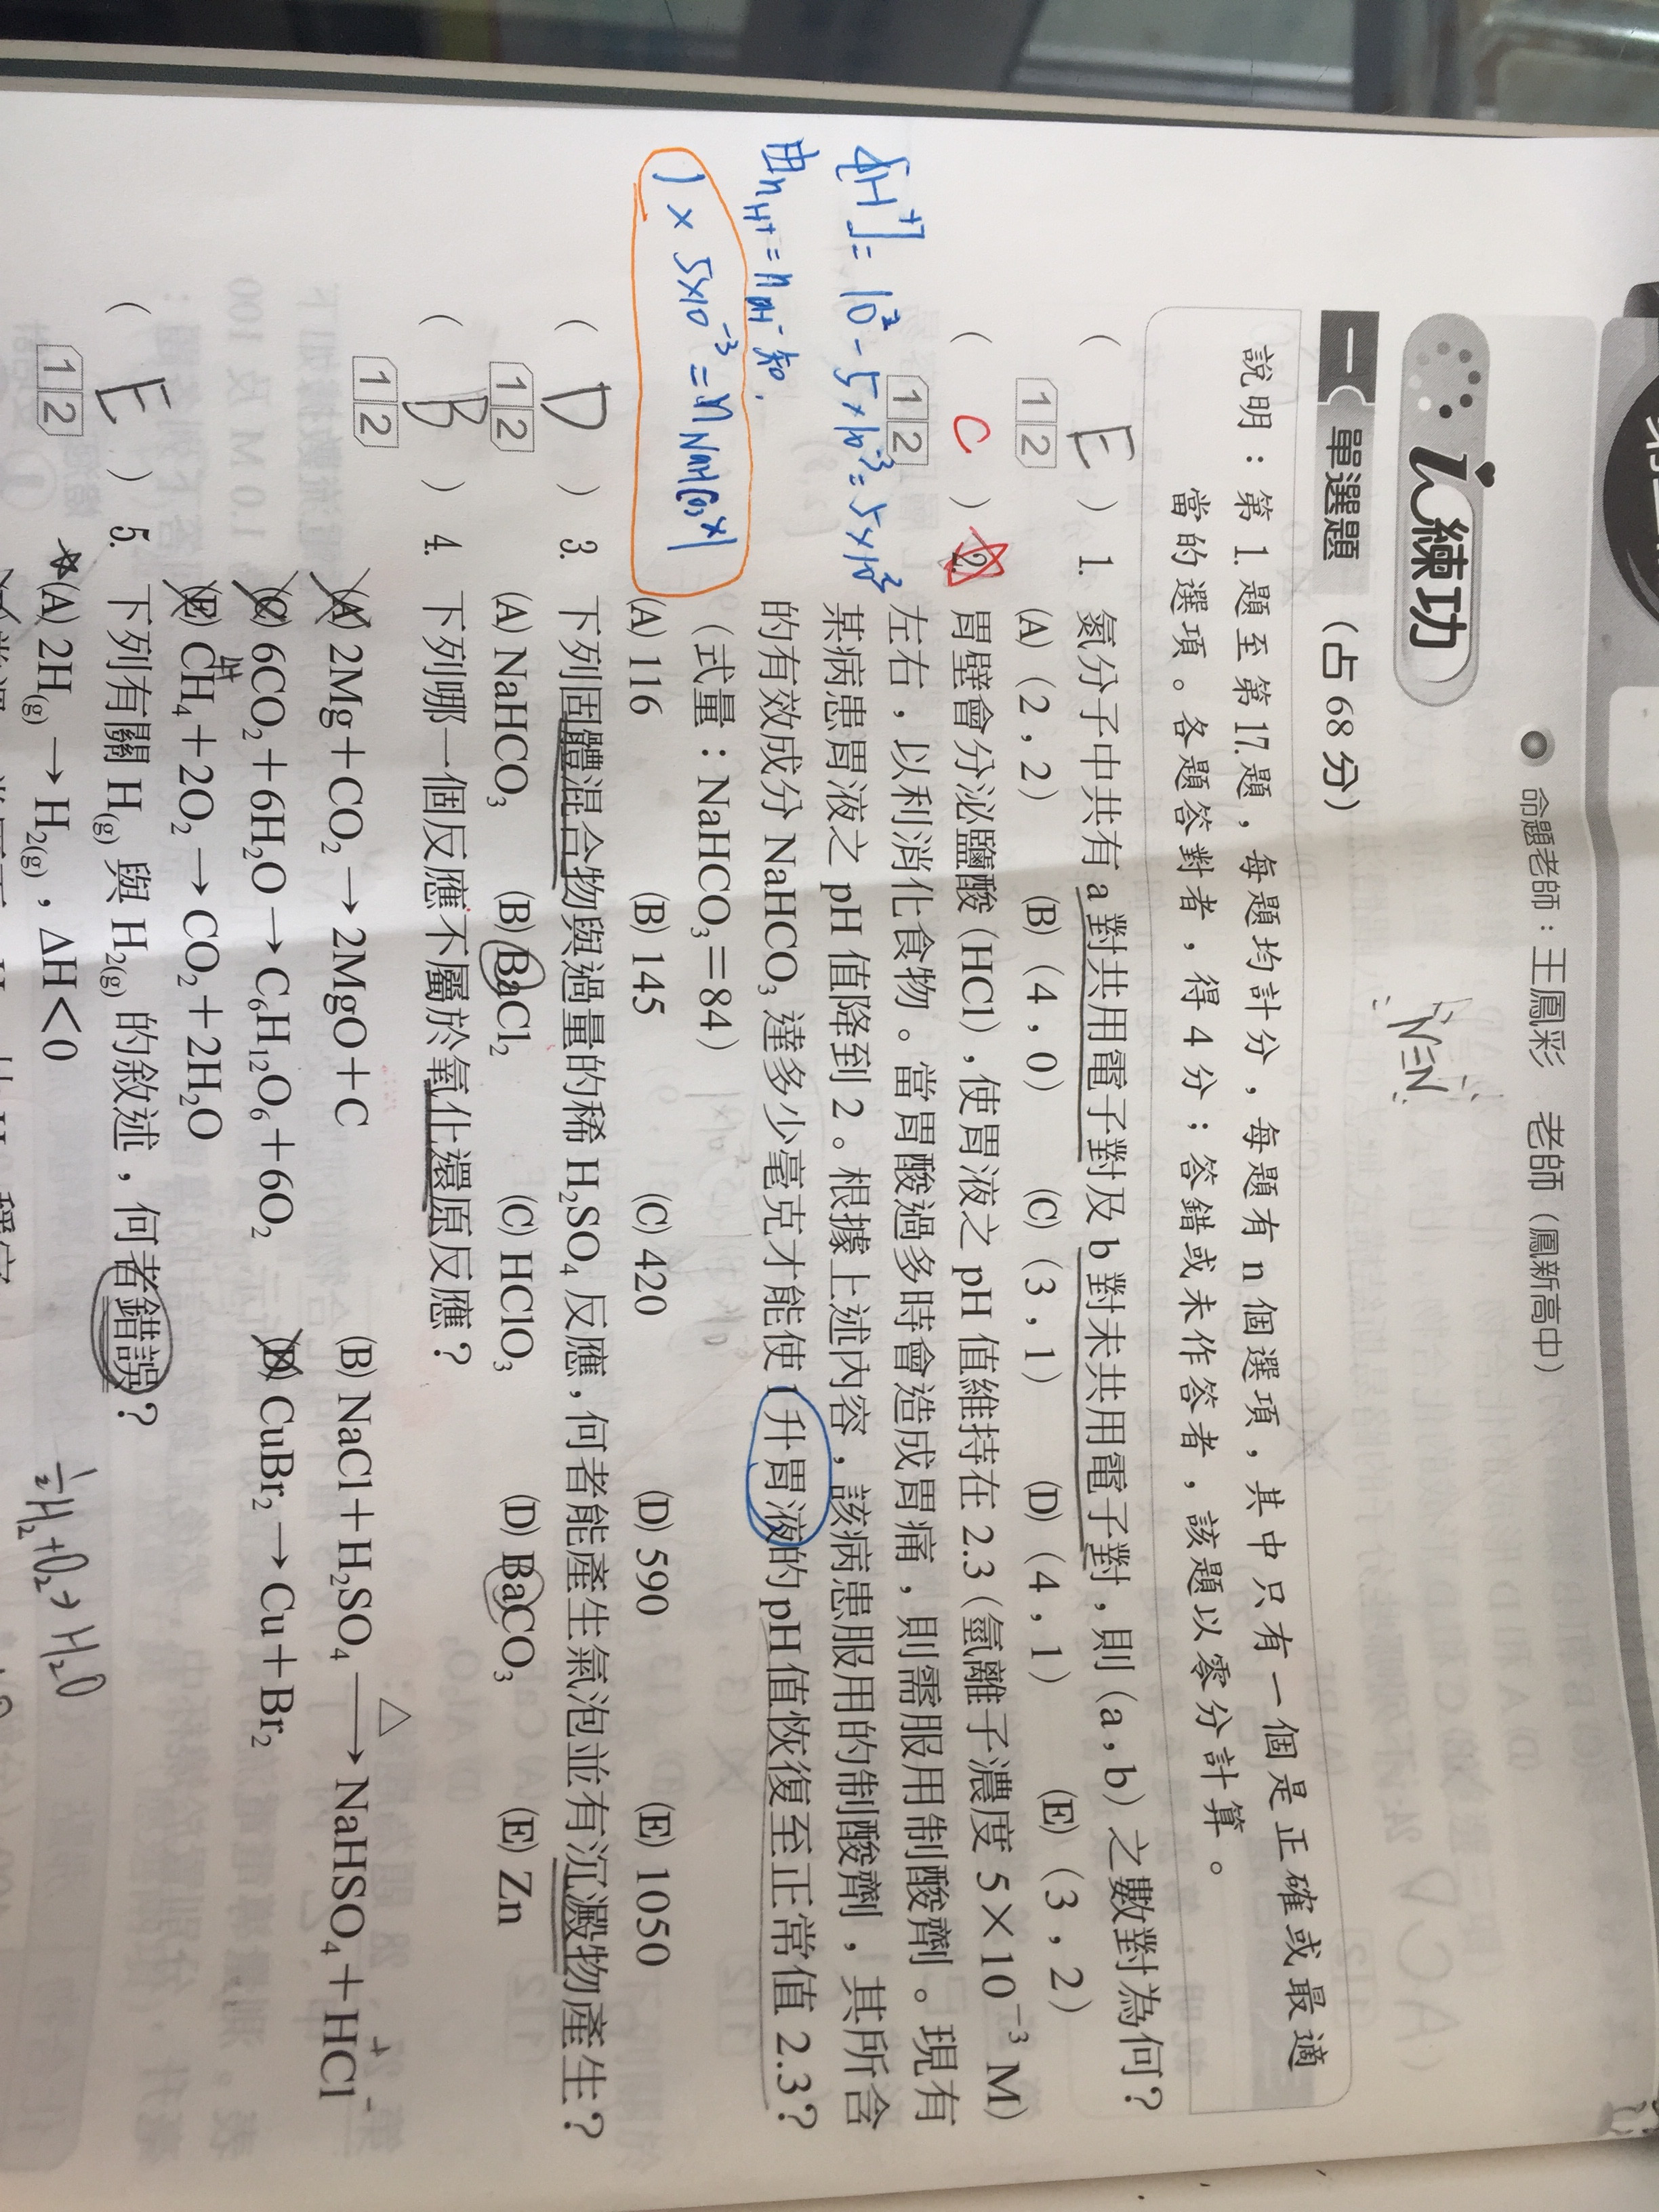 命題老師：王鳳彩 老師（鳳新高中）
i練功
一 單選題（占68分）
N≡N
說明：第1.題至第17.題，每題均計分，每題有n個選項，其中只有一個是正確或最適
當的選項。各題答對者，得4分；答錯或未作答者，該題以零分計算。
( E ) 1. 氮分子中共有a對共用電子對及b對未共用電子對，則（a，b）之數對為何？
1 2
(A)（2，2） (B)（4，0） (C)（3，1） (D)（4，1） (E)（3，2）
( C ) 2. 胃壁會分泌鹽酸（HCl），使胃液之pH值維持在2.3（氫離子濃度5×10⁻³ M）
1 2
左右，以利消化食物。當胃酸過多時會造成胃痛，則需服用制酸劑。現有
某病患胃液之pH值降到2。根據上述內容，該病患服用的制酸劑，其所含
的有效成分NaHCO₃達多少毫克才能使1升胃液的pH值恢復至正常值2.3？
（式量：NaHCO₃＝84）
(A) 116 (B) 145 (C) 420 (D) 590 (E) 1050
[H⁺]= 10⁻² - 5×10⁻³= 5×10⁻³
由nH⁺=nOH⁻知,
1 × 5×10⁻³ = nNaHCO₃×1
( D ) 3. 下列固體混合物與過量的稀H₂SO₄反應，何者能產生氣泡並有沉澱物產生？
1 2
(A) NaHCO₃ (B) BaCl₂ (C) HClO₃ (D) BaCO₃ (E) Zn
( B ) 4. 下列哪一個反應不屬於氧化還原反應？
1 2
(A) 2Mg＋CO₂→2MgO＋C (B) NaCl＋H₂SO₄ △→ NaHSO₄＋HCl
(C) 6CO₂＋6H₂O→C₆H₁₂O₆＋6O₂ (D) CuBr₂→Cu＋Br₂
(E) CH₄＋2O₂→CO₂＋2H₂O
( E ) 5. 下列有關H(g)與H₂(g)的敘述，何者錯誤？
1 2
(A) 2H(g)→H₂(g)，ΔH＜0
½H₂+O₂→H₂O